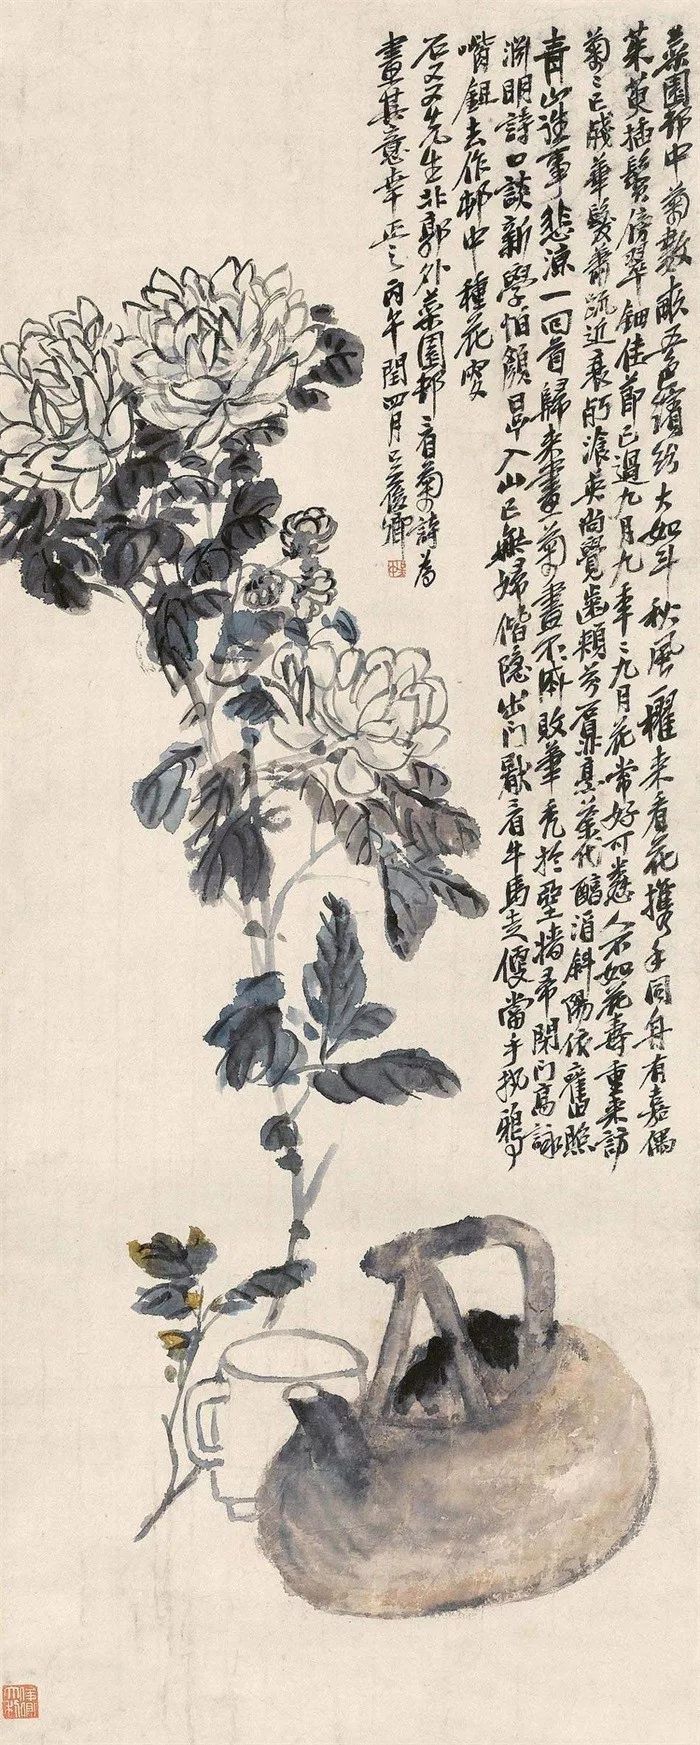 菜園邨中菊數畝五色繽紛大如斗秋風一櫂來看花攜手同舟有嘉偶
茱萸插鬢傍翠鈿佳節已過九月九年二九月花常好可憐人不如花壽重來訪
菊菊已殘華髮蕭疏近衰朽滄英尚覺齒頰芬烹葉代醋酒斜陽依舊照
青山往事悲涼一回首歸來畫菊畫不成敗筆禿於堊牆帚閉門高詠
淵明詩口談新學怕顏厚入山已無婦偕隱出門獸看牛馬走便當手把鴉
嘴鉏去作邨中種花叟
石又又先生北郭外菜園邨看菊詩為
畫其意幸正之丙午閏四月吳俊卿